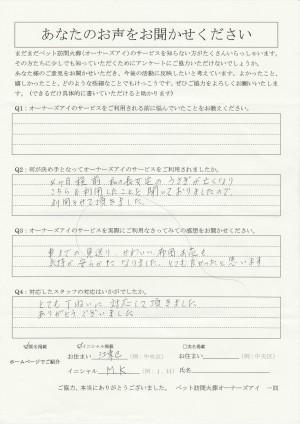 あなたのお声をお聞かせください
まだまだペット訪問火葬(オーナーズアイ)のサービスを知らない方がたくさんいらっしゃいます。
その方たちに少しでも知っていただくためにアンケートにご協力いただけないでしょうか。
あなた様のご意見をお聞かせいただき、今後の活動に反映したいと考えています。よかったこと、
嬉しかったこと、どのような些細なことでもけっこうです。ぜひご協力をよろしくお願いいたしま
す。(できるだけ具体的に書いていただけると助かります)
Q1:オーナーズアイのサービスをご利用される前に悩んでいたことをお教えください。
Q2:何が決め手となってオーナーズアイのサービスをご利用されましたか。
4ヶ月程前 私の長女宅の うさぎが亡くなり
こちらを利用したことを聞いておりましたので
利用させて頂きました。
Q3:オーナーズアイのサービスを実際にご利用なさってみての感想をお聞かせください。
車までの見送り かわいい布団 お花も
気持が安らかになりました。とても良かったと思います
Q4:対応したスタッフの対応はいかがでしたか。
とても丁ねいに 対応して頂きました
ありがとうございました
匿名掲載
イニシャル掲載
実名掲載
ホームページでご紹介
お住まい
(例:中央区)
お住まい
(例:中央区)
イニシャル M.K (例:I.H)
氏名
ご協力、本当にありがとうございました。 ペット訪問火葬オーナーズアイ 一同